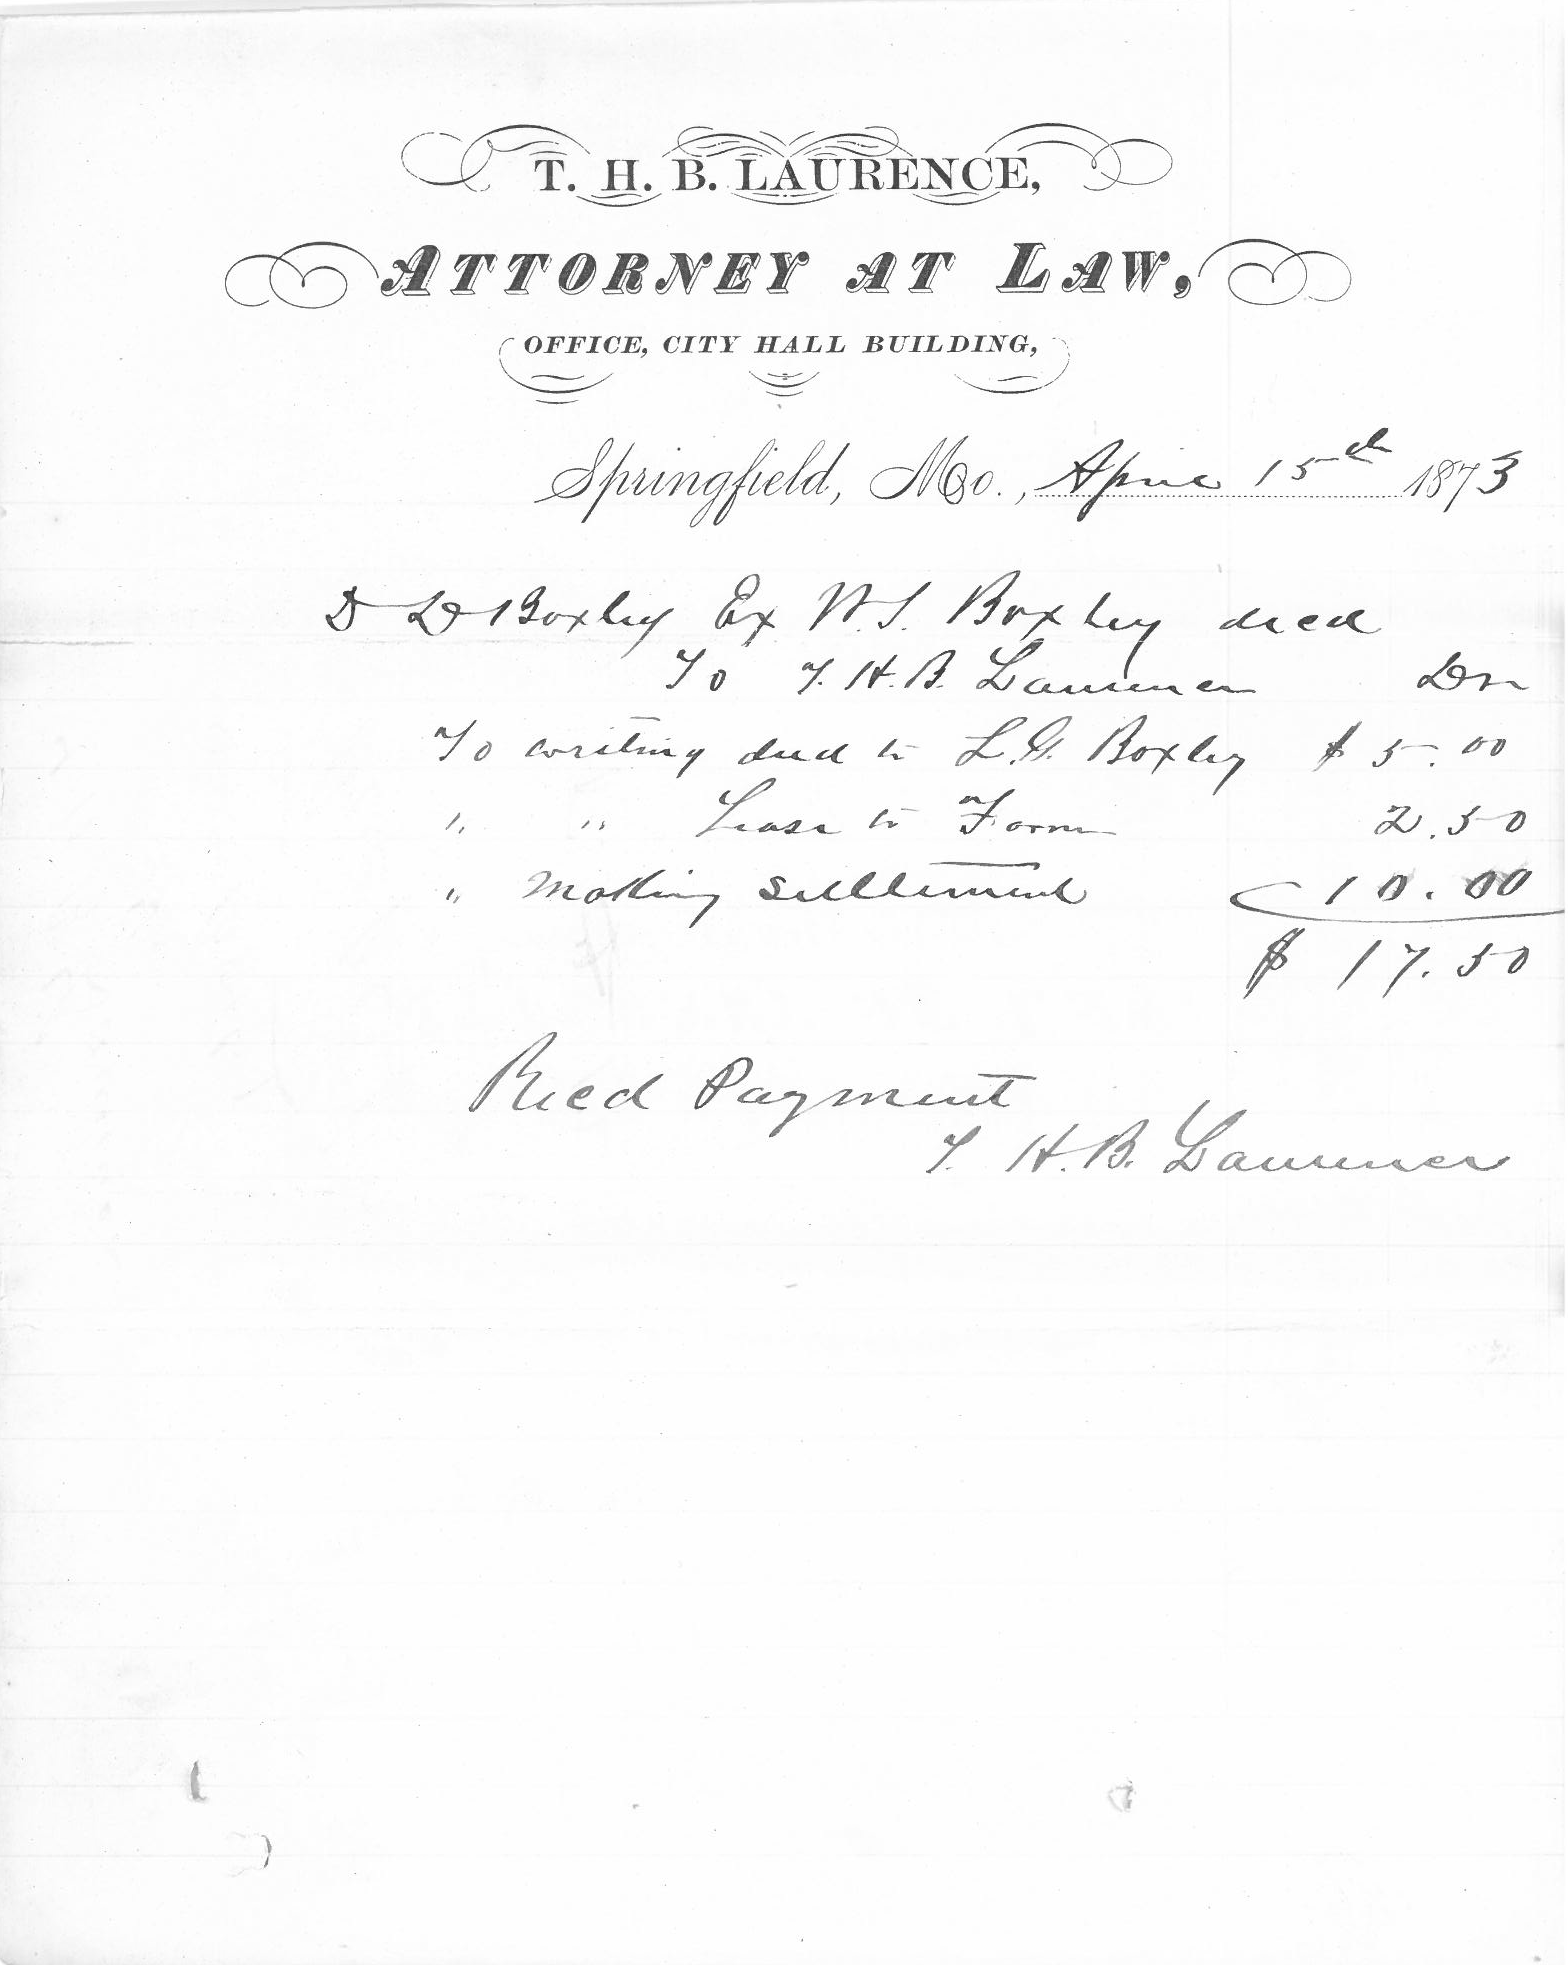 T. H. B. LAURENCE,
ATTORNEY AT LAW,
OFFICE, CITY HALL BUILDING,
Springfield, Mo., April 15th 1873
D D Boxley Ex W. S. Boxley decd
To T. H. B. Laurence Dr
To writing deed to L. G. Boxley $ 5.00
" " Lease to Farm 2.50
" Making settlement 10.00
$ 17.50
Recd Payment
T. H. B. Laurence